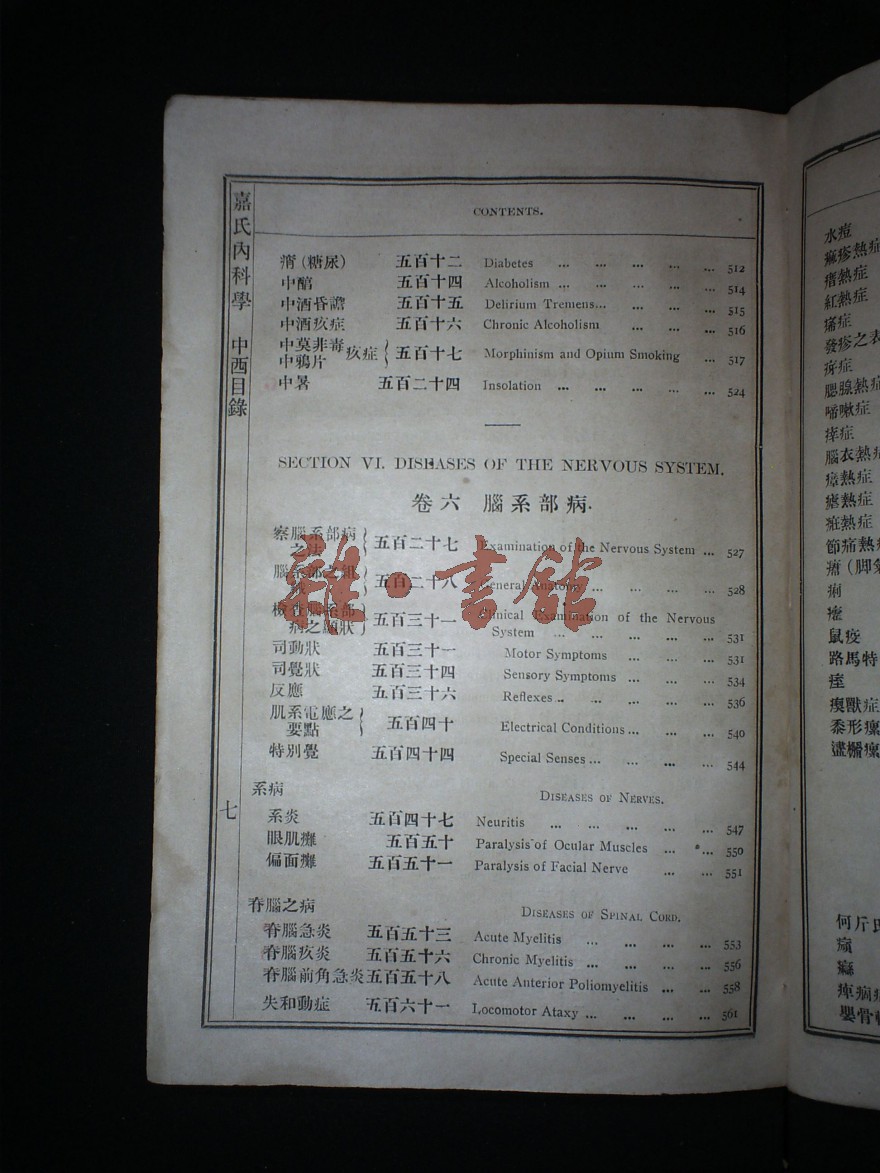 嘉氏內科學 中西目錄 七
CONTENTS.
痟(糖尿) 五百十二 Diabetes ... ... ... ... ... 512
中醕 五百十四 Alcoholism ... ... ... ... ... 514
中酒昏譫 五百十五 Delirium Tremens... ... ... ... 515
中酒疚症 五百十六 Chronic Alcoholism ... ... ... 516
中莫非毒
中鴉片 疚症 五百十七 Morphinism and Opium Smoking ... 517
中暑 五百二十四 Insolation ... ... ... ... ... 524
SECTION VI. DISEASES OF THE NERVOUS SYSTEM.
卷六 腦系部病.
察腦系部病
之法 五百二十七 Examination of the Nervous System ... 527
腦系部之組
織 五百二十八 General Anatomy ... ... ... ... 528
檢查腦系部
病之顯狀 五百三十一 Clinical Examination of the Nervous
System ... ... ... ... ... 531
司動狀 五百三十一 Motor Symptoms ... ... ... 531
司覺狀 五百三十四 Sensory Symptoms ... ... ... 534
反應 五百三十六 Reflexes ... ... ... ... ... 536
肌系電應之
要點 五百四十 Electrical Conditions ... ... ... 540
特別覺 五百四十四 Special Senses ... ... ... ... 544
系病 DISEASES OF NERVES.
系炎 五百四十七 Neuritis ... ... ... ... ... 547
眼肌癱 五百五十 Paralysis of Ocular Muscles ... ... 550
偏面癱 五百五十一 Paralysis of Facial Nerve ... ... 551
脊腦之病 DISEASES OF SPINAL CORD.
脊腦急炎 五百五十三 Acute Myelitis ... ... ... ... 553
脊腦疚炎 五百五十六 Chronic Myelitis ... ... ... ... 556
脊腦前角急炎 五百五十八 Acute Anterior Poliomyelitis ... ... 558
失和動症 五百六十一 Locomotor Ataxy ... ... ... ... 561
雜·書館
水痘
痲疹熱症
熱症
紅熱症
痧症
發疹之表
疥症
腮腺熱症
嗗嗽症
腦衣熱症
瘴熱症
瘧熱症
節痛熱症
痢
鼠疫
路馬特
瘈獸症
黍形癆
何斤氏
痳
痺病
嬰骨軟